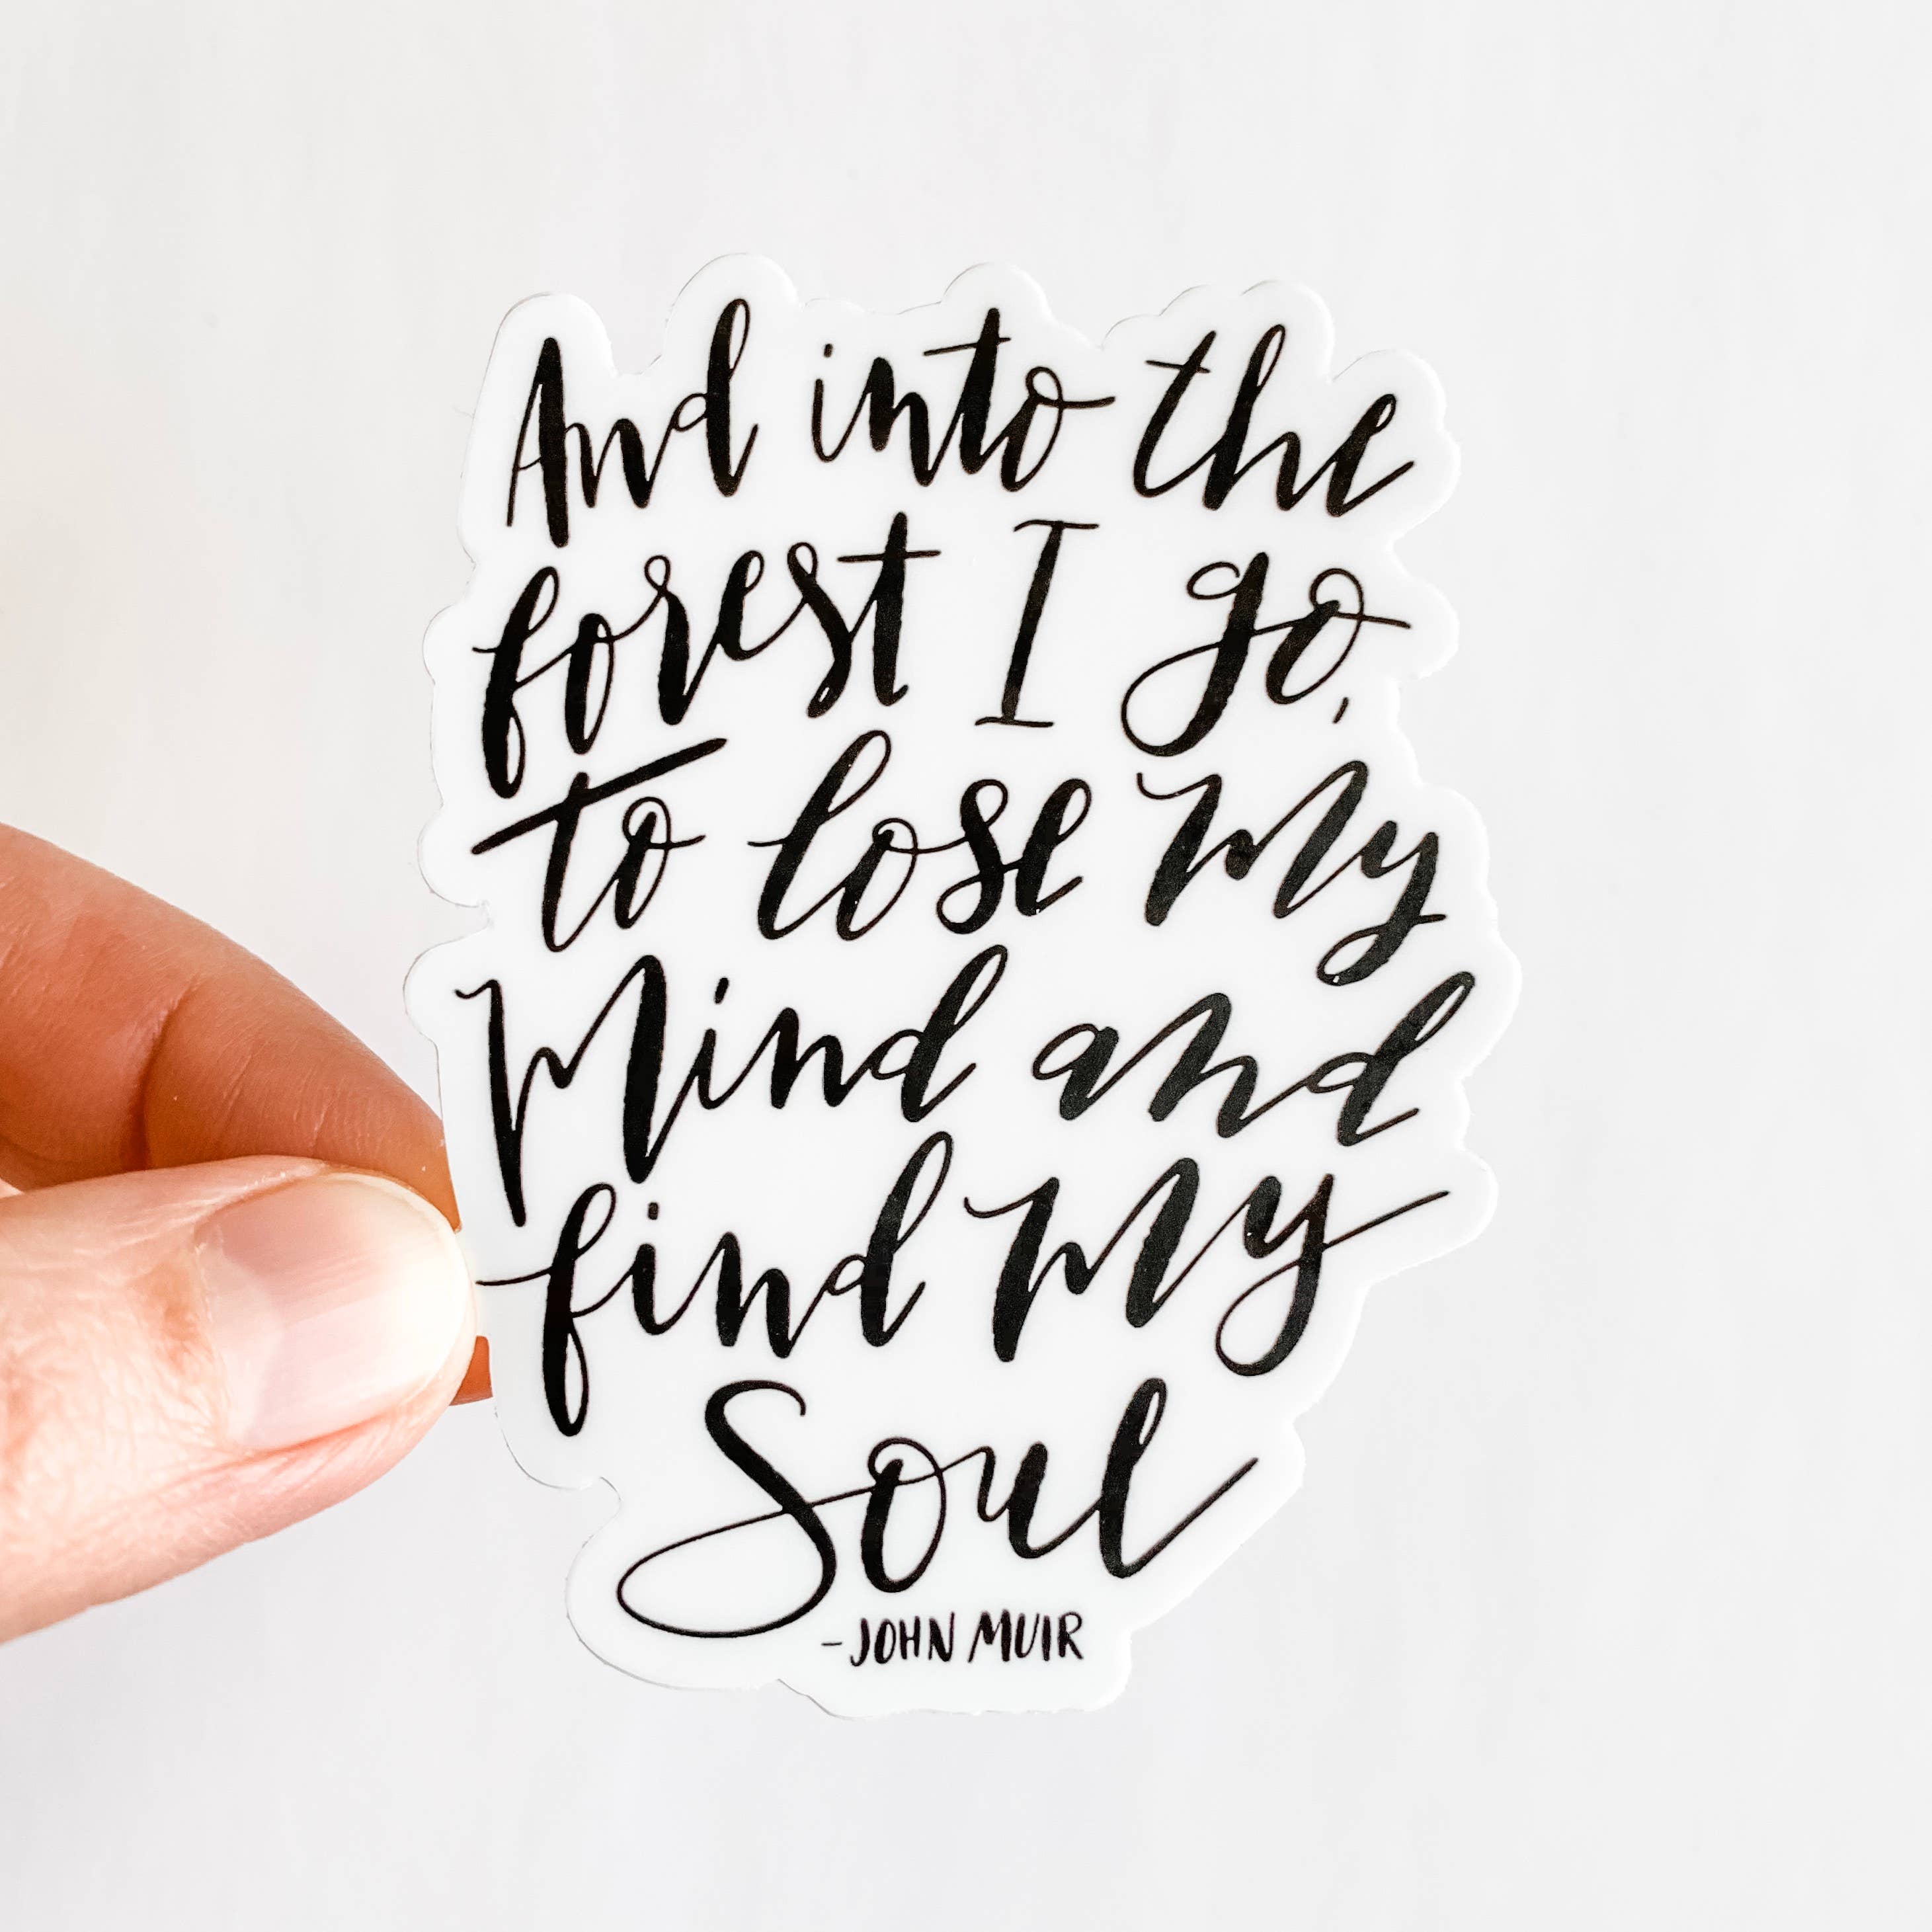 And into the
forest I go,
to lose my
Mind and
find my
Soul
-JOHN MUIR